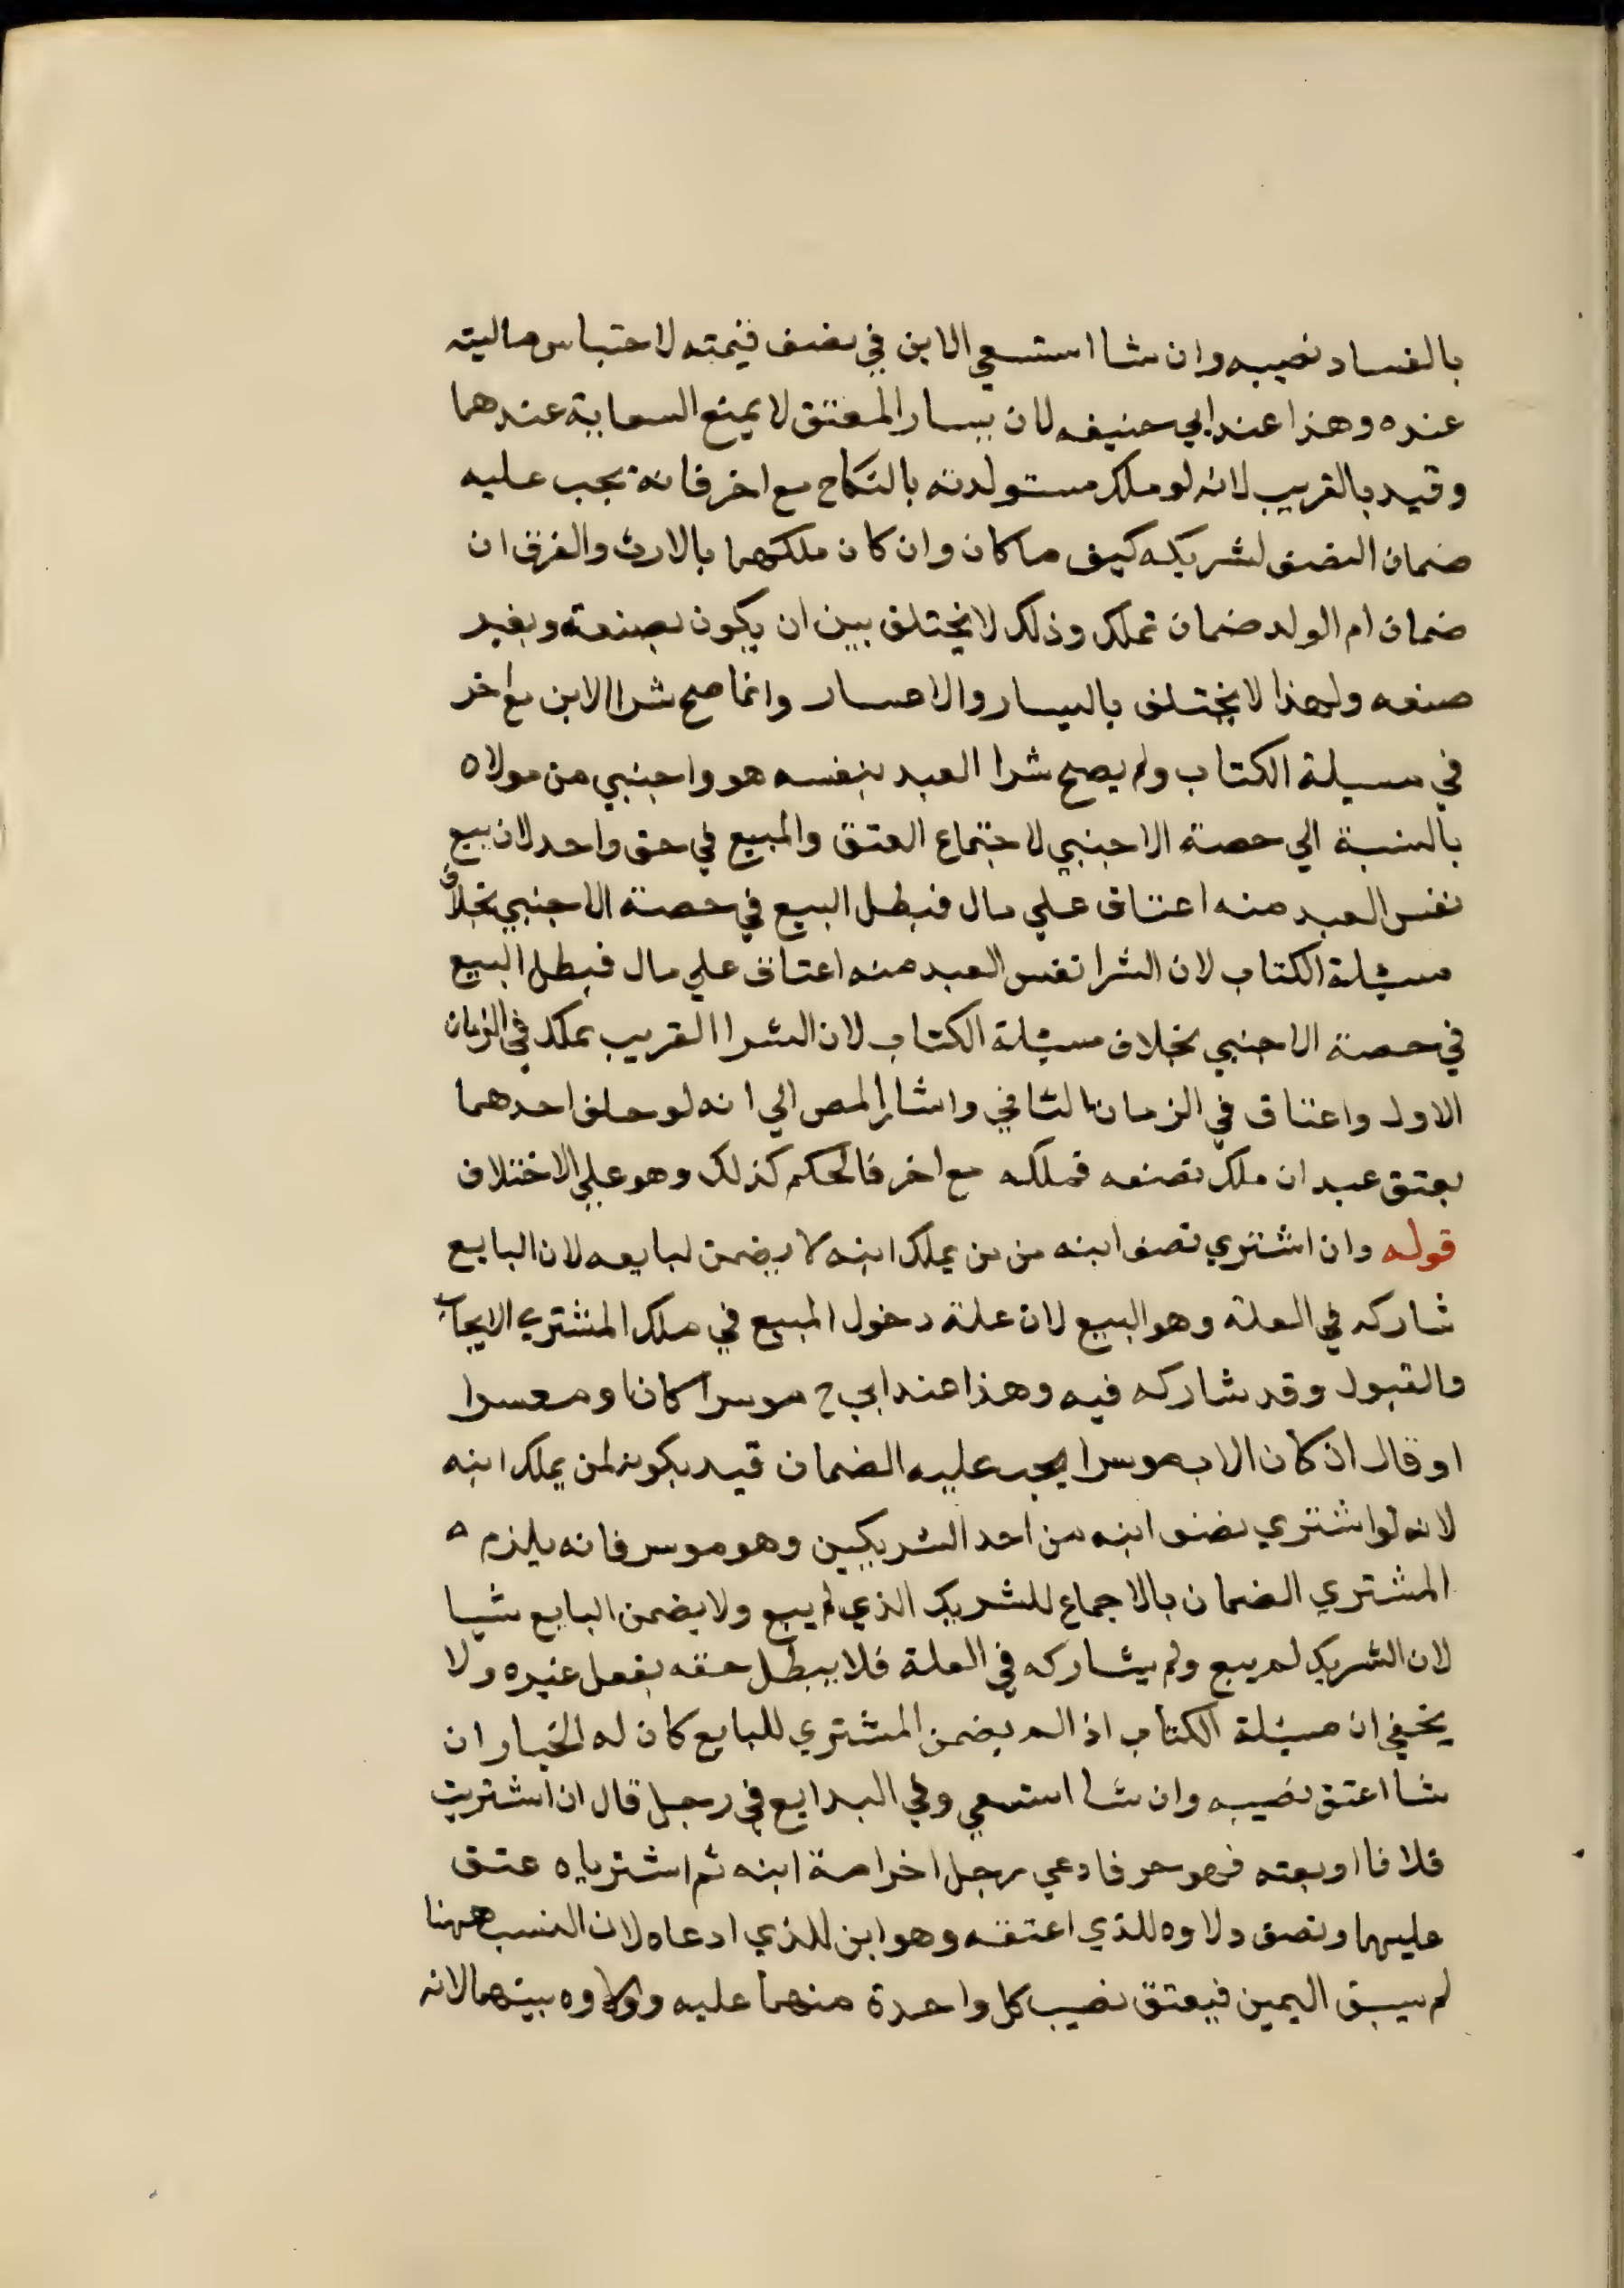 بالفساد نصيبه وان شا استسعي الابن في نصف قيمته لاحتباس ماليته
عنده وهذا عند ابي حنيفه لان يسار المعتق لا يمنع السعاية عندهما
وقيد بالقريب لانه لو ملك مستولدته بالنكاح مع اخر فانه يجب عليه
ضمان النصف لشريكه كيف ما كان وان كان ملكهما بالارث والفرق ان
ضمان ام الولد ضمان تملك وذلك لا يختلف بين ان يكون بصنعه وبغير
صنعه ولهذا لا يختلف باليسار والاعسار وانما صح شرا الابن مع اخر
في مسيلة الكتاب ولم يصح شرا العبد بنفسه هو واجنبي من مولاه
بالنسبة الي حصة الاجنبي لاجتماع العتق والمبيع في حق واحد لان بيع
نفس العبد منه اعتاق علي مال فبطل البيع في حصة الاجنبي بخلاف
مسئلة الكتاب لان الشرا نفس العبد منه اعتاق علي مال فبطل البيع
في حصة الاجنبي بخلاف مسئلة الكتاب لان الشرا القريب تملك في الزمان
الاول واعتاق في الزمان الثاني واشار المص الي انه لو حلف احدهما
بعتق عبد ان ملك نصفه فملكه مع اخر فالحكم كذلك وهو علي الاختلاف
قوله وان اشتري نصف ابنه من من يملك ابنه لا يضمن لبايعه لان البايع
شاركه في العلة وهو البيع لان علة دخول المبيع في ملك المشتري الايجاب
والقبول وقد شاركه فيه وهذا عند ابي ح موسرا كان او معسرا
او قال ان كان الاب موسرا يجب عليه الضمان قيد بكونه لمن يملك ابنه
لانه لو اشتري نصف ابنه من احد الشريكين وهو موسر فانه يلزم ه
المشتري الضمان بالاجماع للشريك الذي لم يبيع ولا يضمن البايع شيا
لان الشريك لم يبيع ولم يشاركه في العلة فلا يبطل حقه بفعل غيره ولا
يخفي ان مسئلة الكتاب اذا لم يضمن المشتري للبايع كان له الخيار ان
شا اعتق نصيبه وان شا استسعي وفي البدايع في رجل قال ان اشتريت
فلانا او بعته فهو حر فادعي رجل اخر انه ابنه ثم اشترياه عتق
عليهما ونصف ولاوه للذي اعتقه وهو ابن للذي ادعاه لان النسب ههنا
لم يسبق اليمين فيعتق نصيب كل واحدة منهما عليه وولاوه بينهما لانه